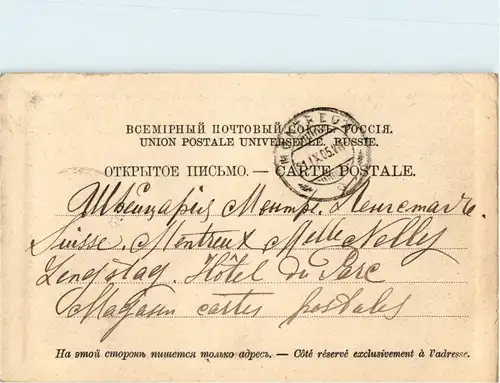 ВСЕМІРНЫЙ ПОЧТОВЫЙ СОЮЗЪ. РОССІЯ.
UNION POSTALE UNIVERSELLE. RUSSIE.
ОТКРЫТОЕ ПИСЬМО. — CARTE POSTALE.
MONTREUX
IX.05
Швейцарія Монтре
Suisse. Montreux Melle Nelly
Hôtel du Parc
Magasin cartes postales
На этой сторонѣ пишется только адресъ. — Côté réservé exclusivement à l'adresse.